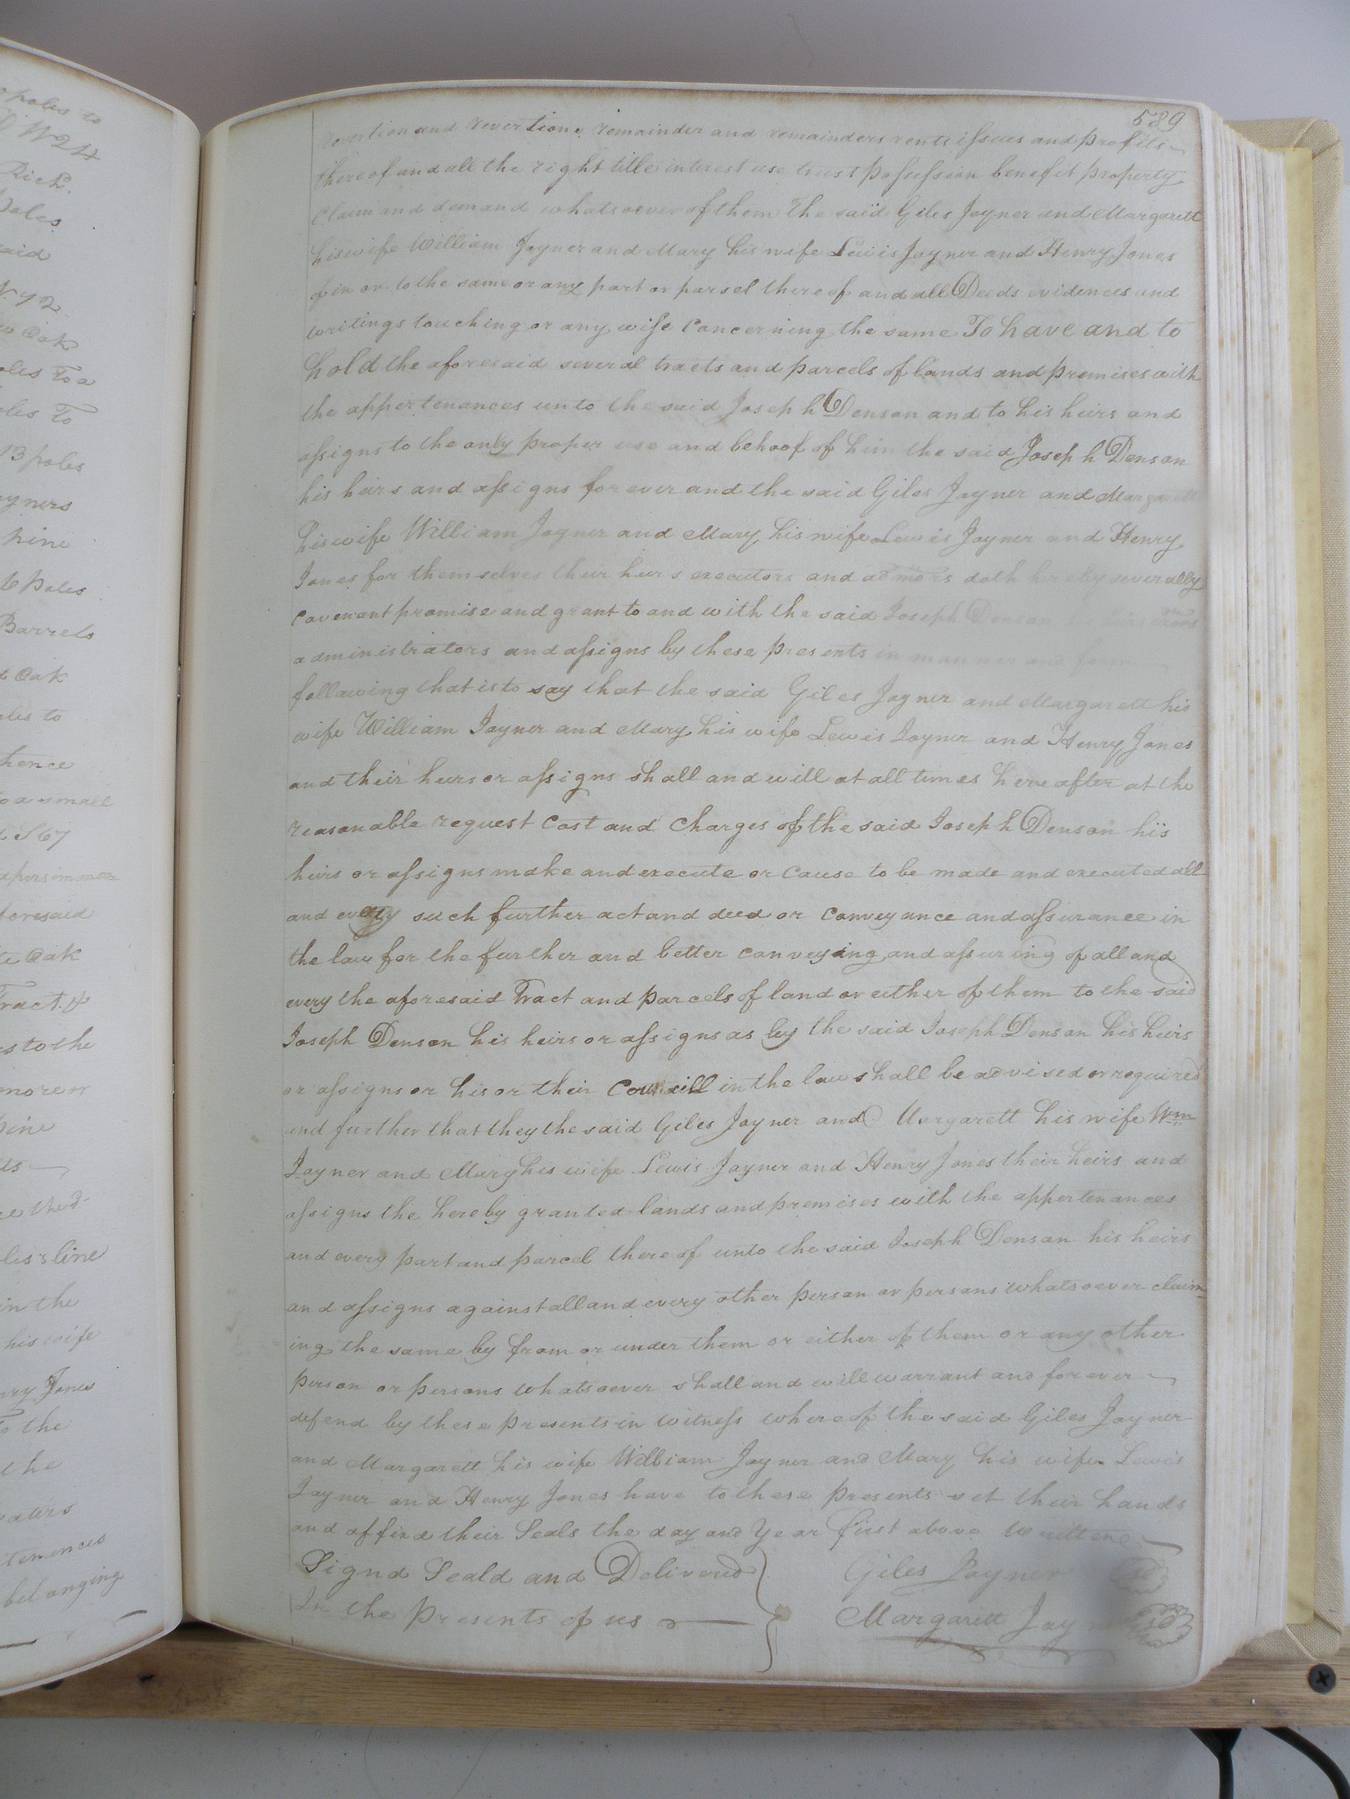 o poles to
d W24
Rich.
Poles
said
N 92
w Oak
oles to a
oles To
13 poles
oyners
pine
6 Poles
Barrels
d Oak
oles to
thence
to a small
d S67
a persimmon
foresaid
te Oak
Tract of
es to the
more or
pine
ts
ce the
les's line
in the
his wife
nry Jones
To the
the
waters
rtenences
belonging
589
revertion and revertions remainder and remainders rents issues and profits
thereof and all the right title interest use trust possession benefit property
Claim and demand whatsoever of them the said Giles Joyner and Margarett
his wife William Joyner and Mary his wife Lewis Joyner and Henry Jones
of in or to the same or any part or parsel thereof and all Deeds evidences and
writings touching or any wise Concerning the same To have and to
hold the aforesaid several tracts and parcels of lands and premises with
the appertenances unto the said Joseph Denson and to his heirs and
assigns to the only proper use and behoof of him the said Joseph Denson
his heirs and assigns for ever and the said Giles Joyner and Margarett
his wife William Joyner and Mary his wife Lewis Joyner and Henry
Jones for themselves their heirs executors and admors doth hereby severally
covenant promise and grant to and with the said Joseph Denson his heirs
administrators and assigns by these presents in manner and form
following that is to say that the said Giles Joyner and Margarett his
wife William Joyner and Mary his wife Lewis Joyner and Henry Jones
and their heirs or assigns shall and will at all times here after at the
reasonable request Cost and Charges of the said Joseph Denson his
heirs or assigns make and execute or Cause to be made and executed all
and every such further act and deed or Conveyance and assurance in
the law for the further and better conveying and assuring of all and
every the aforesaid Tract and parcels of land or either of them to the said
Joseph Denson his heirs or assigns as by the said Joseph Denson his heirs
or assigns or his or their Councill in the law shall be advised or required
and further that they the said Giles Joyner and Margarett his wife Wm
Joyner and Mary his wife Lewis Joyner and Henry Jones their heirs and
assigns the hereby granted lands and premises with the appertenances
and every part and parcel thereof unto the said Joseph Denson his heirs
and assigns against all and every other person or persons whatsoever claim
ing the same by from or under them or either of them or any other
person or persons whatsoever shall and will warrant and for ever
defend by these presents in witness whereof the said Giles Joyner
and Margarett his wife William Joyner and Mary his wife Lewis
Joyner and Henry Jones have to these presents set their hands
and affixd their Seals the day and year first above written
Signd Seald and Delivered Giles Joyner
In the presents of us Margarett Joyner